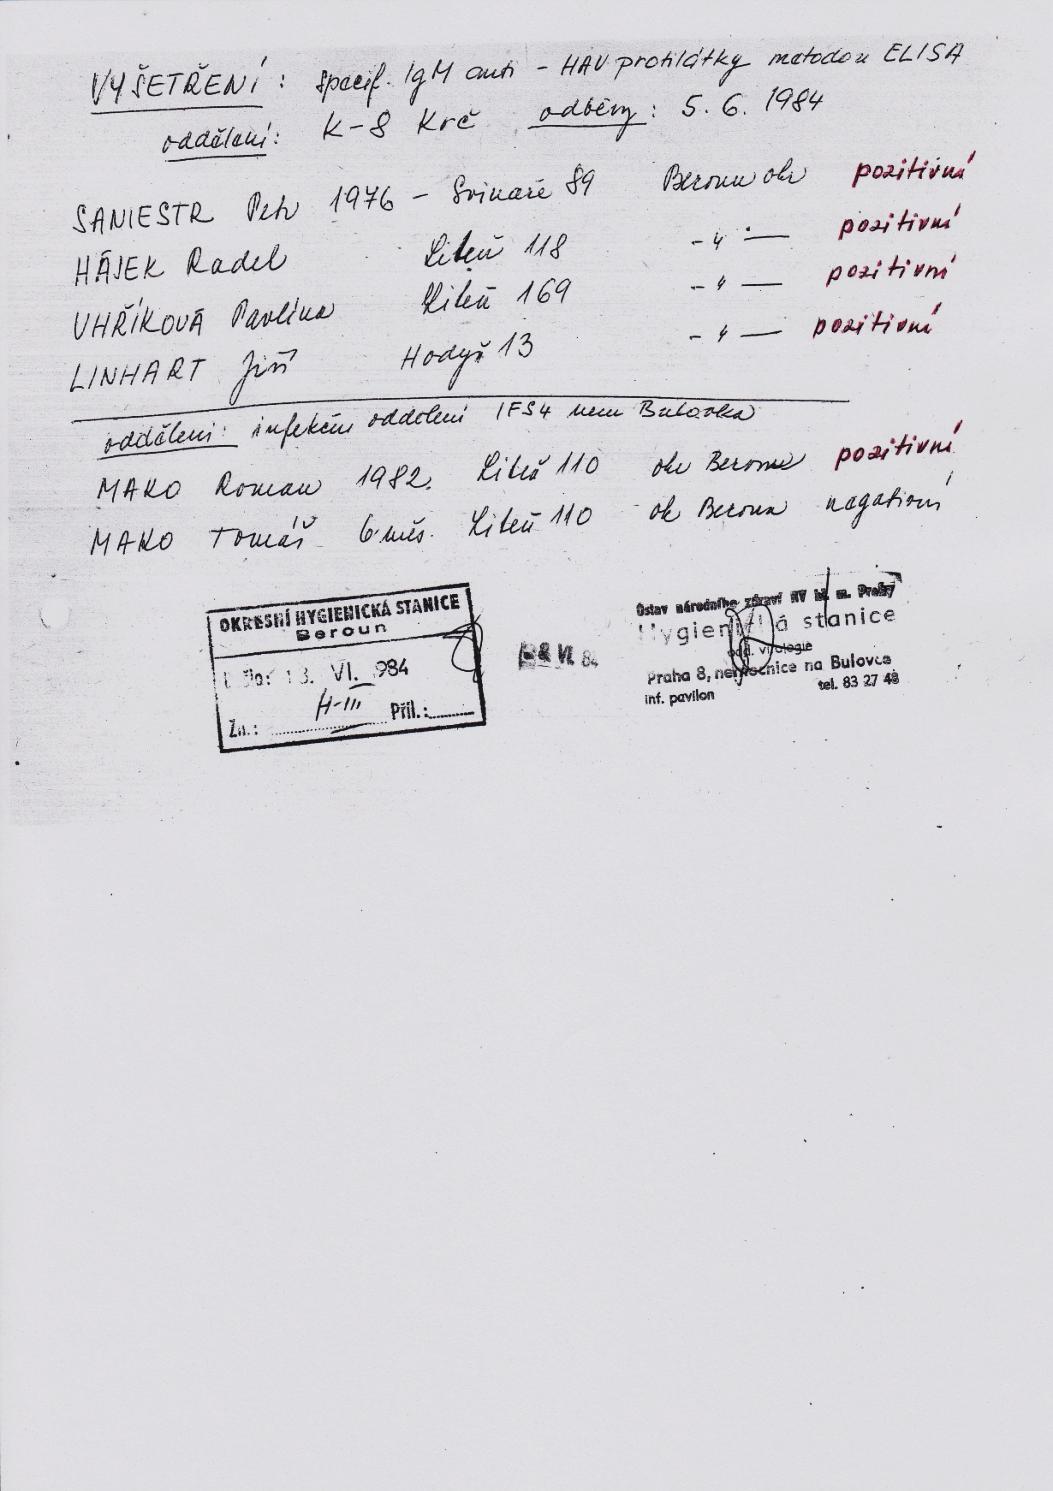 VYŠETŘENÍ: specif. IgM anti - HAV protilátky metodou ELISA
oddělení: K-8 Krč odběry: 5. 6. 1984
SANIESTR Petr 1976 - Svinaře 89 Beroun okr pozitivní
HÁJEK Radek Liteň 118 - " - pozitivní
UHŘÍKOVÁ Pavlína Liteň 169 - " - pozitivní
LINHART Jiří Hodyň 13 - " - pozitivní
oddělení: infekční oddělení IFS4 nem Bulovka
MAKO Roman 1982. Liteň 110 okr Beroun pozitivní
MAKO Tomáš 6 měs. Liteň 110 ok Beroun negativní
OKRESNÍ HYGIENICKÁ STANICE
Beroun
Došlo: 13. VI. 1984
H-III
Zn.: Příl.:
8 VI. 84
Ústav národního zdraví NV hl. m. Prahy
Hygienická stanice
odd. virologie
Praha 8, nemocnice na Bulovce
inf. pavilon tel. 83 27 48